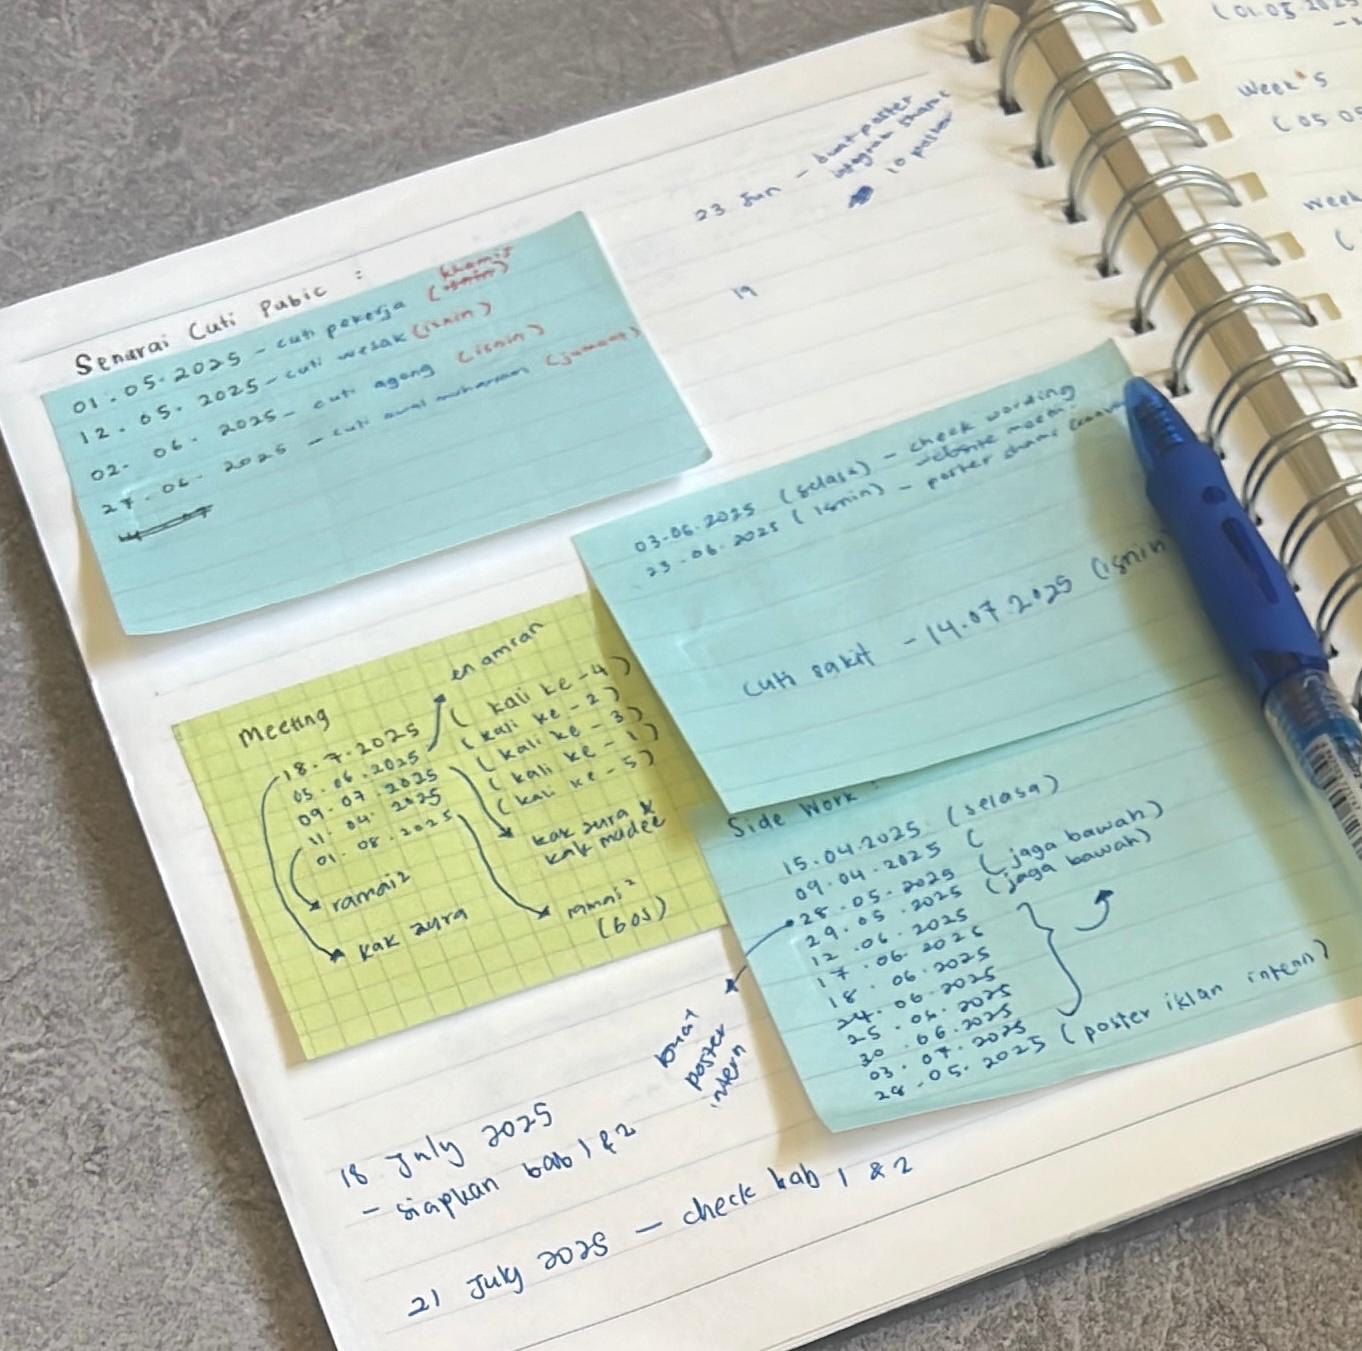 Senarai Cuti Pubic :
01.05.2025 - cuti pekerja (isnin) khamis
12.05.2025 - cuti wesak (isnin)
02.06.2025 - cuti agong (isnin)
27.06.2025 - cuti awal muharram (jumaat)
23 Jun - buat poster
integrasi shams
10 poster
19
03.06.2025 (selasa) - check wording
website
23.06.2025 (isnin) - poster shams
cuti sakit - 14.07.2025 (isnin
Meeting
en amran
18.7.2025 (kali ke-4)
05.06.2025 (kali ke-2)
09.07.2025 (kali ke-3)
11.04.2025 (kali ke-1)
01.08.2025 (kali ke-5)
kak zura &
kak madee
ramai²
kak zura
ramai²
(bos)
Side Work :
15.04.2025 (selasa)
09.04.2025 (
28.05.2025 (jaga bawah)
29.05.2025 (jaga bawah)
12.06.2025
17.06.2025
18.06.2025
24.06.2025
25.06.2025
30.06.2025
03.07.2025
28.05.2025 (poster iklan intern)
buat
poster
intern
18 July 2025
- siapkan bab 1 & 2
21 July 2025 - check bab 1 & 2
(01.05.2025
Week 5
(05 05
Week
(